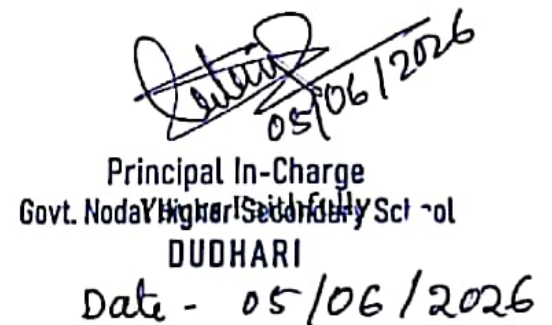 05/06/2026
Principal In-Charge
Govt. Nodal Higher Secondary School
Yours Faithfully
DUDHARI
Date - 05/06/2026